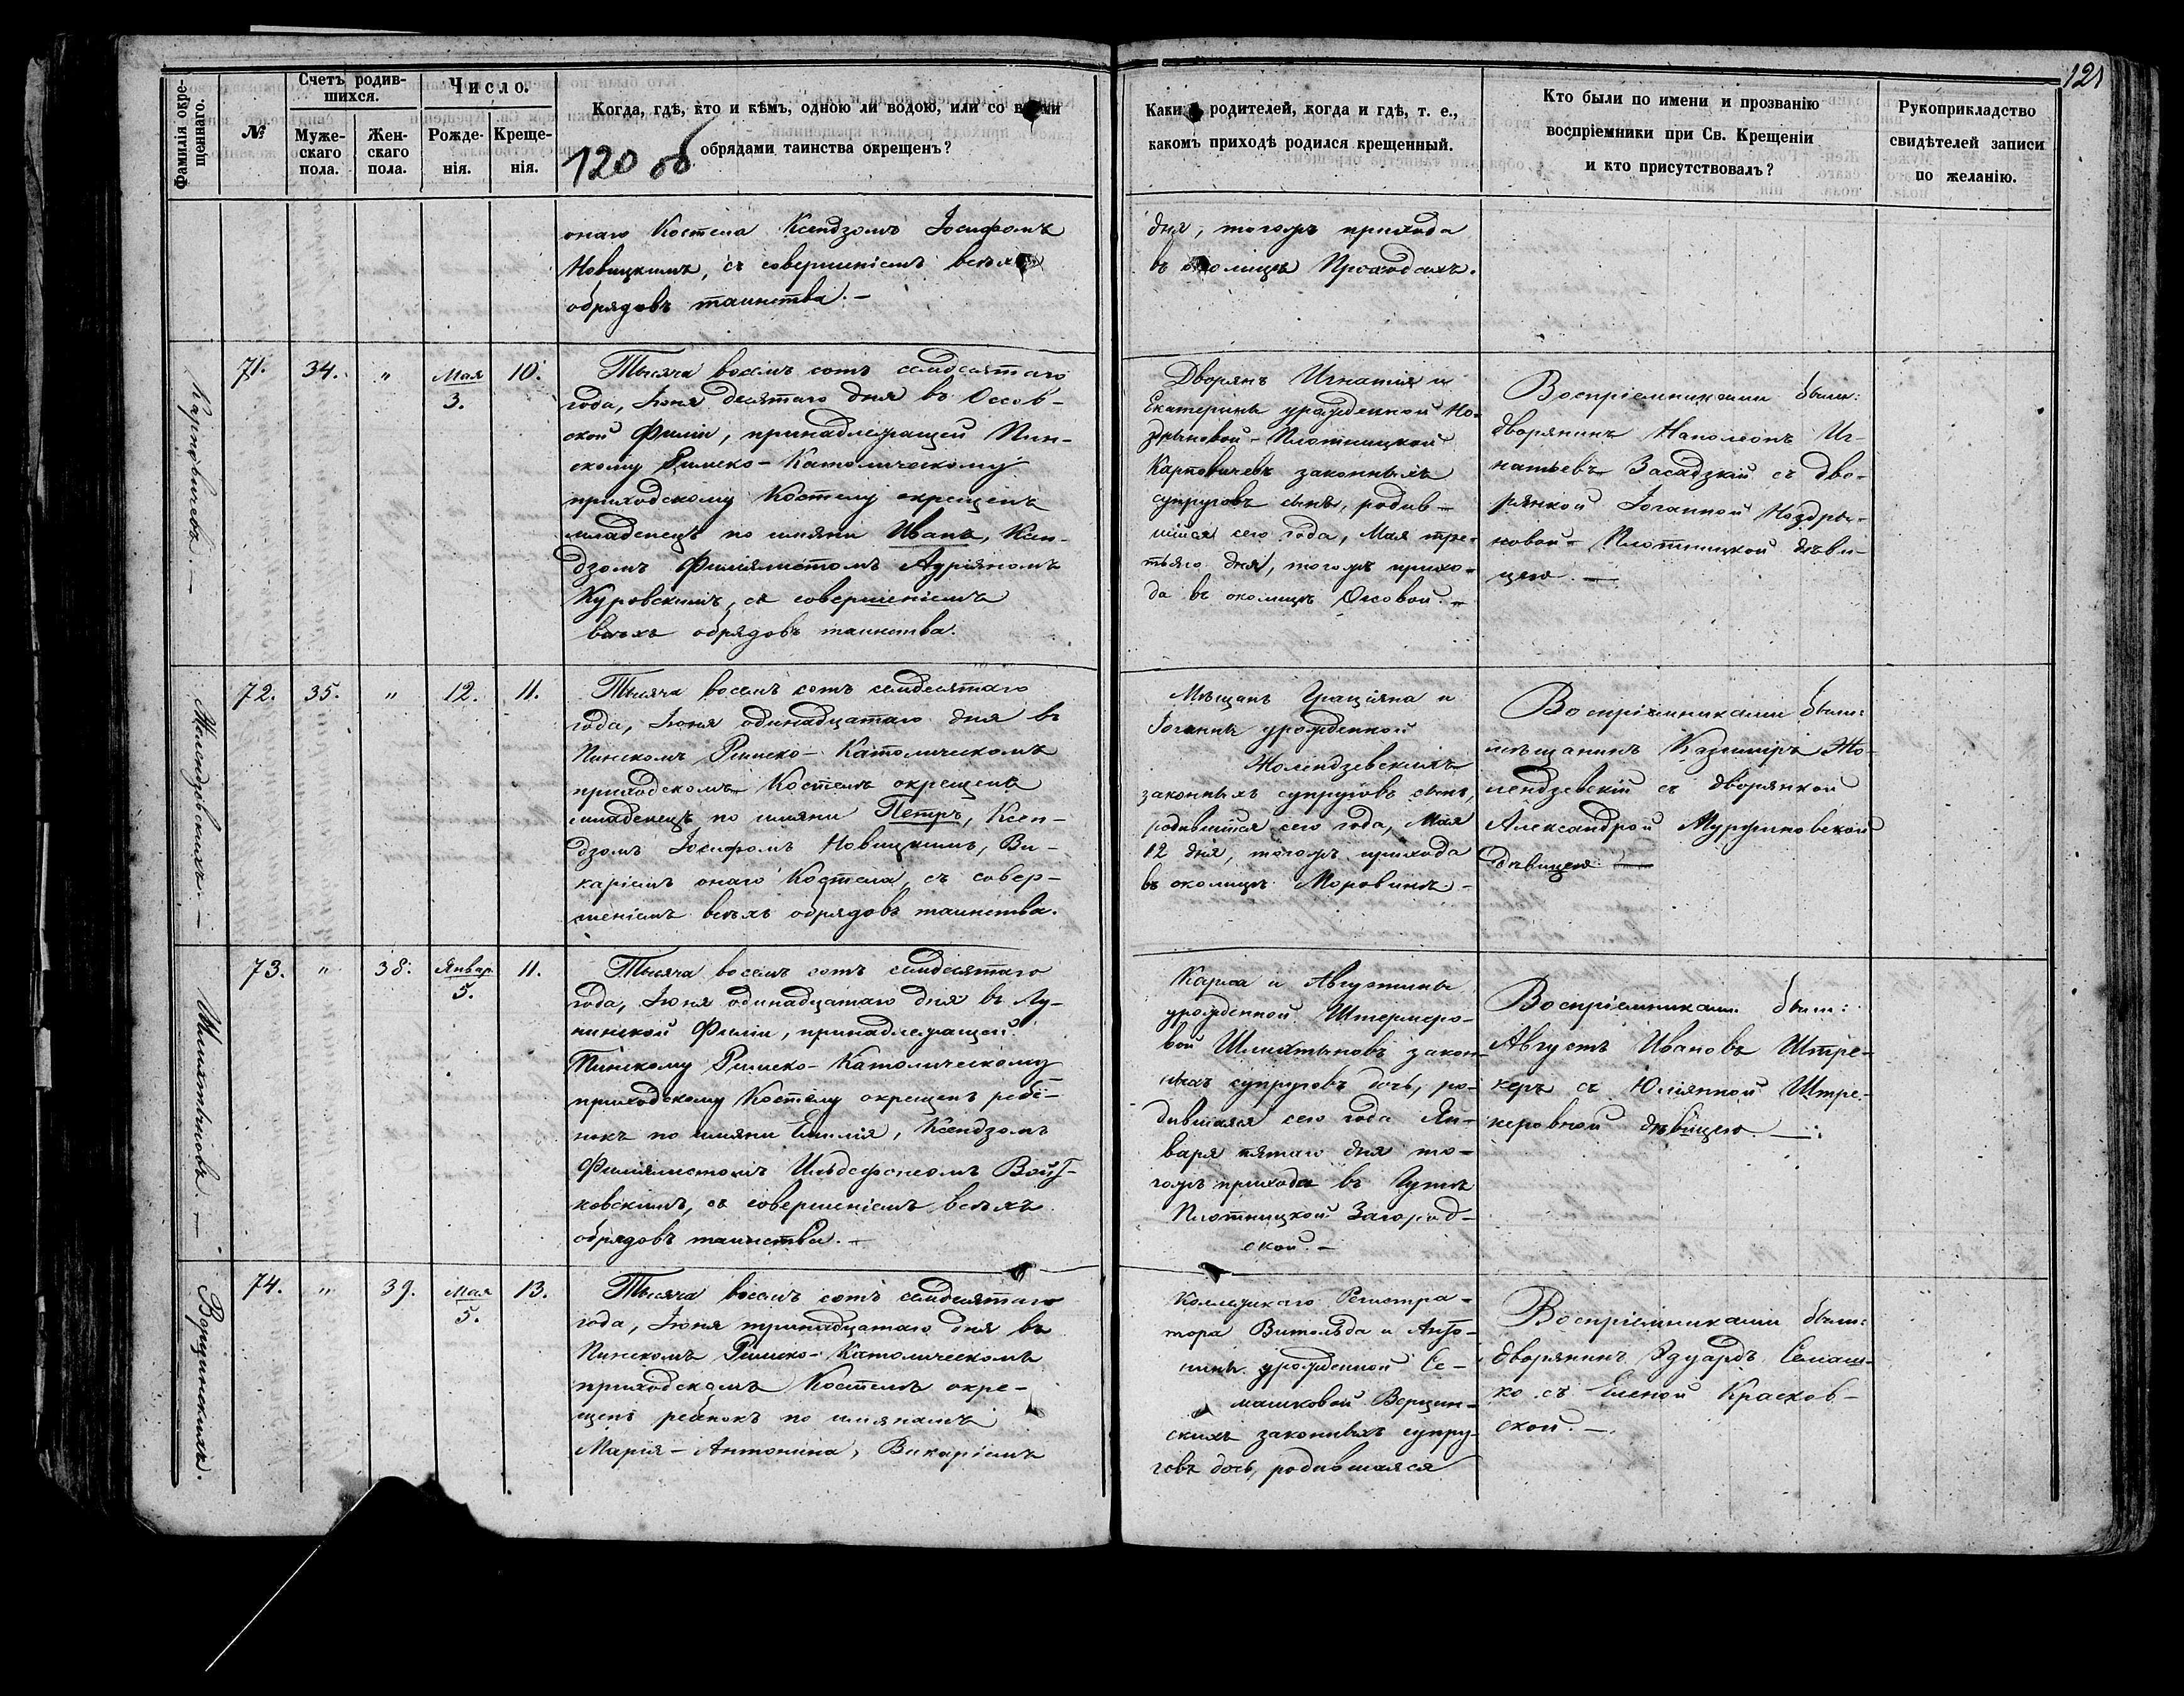 121
Фамилія окре-
щеннаго.
№
Счетъ родив-
шихся.
Муже-
скаго
пола.
Жен-
скаго
пола.
Число.
Рожде-
нія.
Креще-
нія.
Когда, гдѣ, кто и кѣмъ, одною ли водою, или со
обрядами таинства окрещенъ?
120 об
Какихъ родителей, когда и гдѣ, т. е.,
какомъ приходѣ родился крещенный.
Кто были по имени и прозванію
воспріемники при Св. Крещеніи
и кто присутствовалъ?
Рукоприкладство
свидѣтелей записи
по желанію.
онаго Костела Ксендзомъ Іосифомъ
Новицкимъ, съ совершеніемъ всѣхъ
обрядовъ таинства. —
дня, тогожъ прихода
въ околицѣ Проходахъ.
Карповичевъ. —
71.
34.
"
Мая
3.
10.
Тысяча восемь сотъ семдесятаго
года, Іюня десятаго дня въ Оссов-
ской Филіи, принадлежащей Пин-
скому Римско-Католическому
приходскому Костелу окрещенъ
младенецъ по имяни Иванъ, Ксен-
дзомъ Филіялистомъ Адріяномъ
Куровскимъ, съ совершеніемъ
всѣхъ обрядовъ таинства.
Дворянъ Игнатія и
Екатерины урожденной Но-
здрыновой-Плотницкой
Карповичевъ законныхъ
супруговъ сынъ, родив-
шійся сего года, Мая тре-
тьяго дня, тогожъ прихо-
да въ околицѣ Оссовой. —
Воспріемниками были:
дворянинъ Наполеонъ Иг-
натьевъ Засадзкій съ дво-
рянкой Іоганной Ноздры-
новой-Плотницкой дѣви-
цею. —
Жолендзѣвскихъ. —
72.
35.
"
12.
11.
Тысяча восемь сотъ семдесятаго
года, Іюня одинадцатаго дня въ
Пинскомъ Римско-Католическомъ
приходскомъ Костелѣ окрещенъ
младенецъ по имяни Петръ, Ксен-
дзомъ Іосифомъ Новицкимъ, Ви-
каріемъ онаго Костела, съ совер-
шеніемъ всѣхъ обрядовъ таинства.
Мѣщанъ Граціяна и
Іоганны урожденной
Жолендзевскихъ
законныхъ супруговъ сынъ,
родившійся сего года, Мая
12 дня, тогожъ прихода
въ околицѣ Моровинѣ —
Воспріемниками были:
мѣщанинъ Казимиръ Жо-
лендзевскій съ дворянкой
Александрой Муржиновской
дѣвицею. —
Шляхтыновъ. —
73.
"
38.
Январ.
5.
11.
Тысяча восемь сотъ семдесятаго
года, Іюня одинадцатаго дня въ Лу-
нинской Филіи, принадлежащей
Пинскому Римско-Католическому
приходскому Костелу окрещенъ ребё-
нокъ по имяни Емилія, Ксендзомъ
Филіялистомъ Ильдефонсомъ Войт-
ковскимъ, съ совершеніемъ всѣхъ
обрядовъ таинства. —
Карла и Августины
урожденной Штермеро-
вой Шлихтыновъ закон-
ныхъ супруговъ дочь, ро-
дившаяся сего года Ян-
варя пятаго дня то-
гожъ прихода въ Гутѣ
Плотницкой Загород-
ской. —
Воспріемниками были:
Августъ Ивановъ Штре-
керъ съ Юліянной Штре-
керовной дѣвицею. —
Верцинскихъ.
74.
"
39.
Мая
5.
13.
Тысяча восемь сотъ семдесятаго
года, Іюня тринадцатаго дня въ
Пинскомъ Римско-Католическомъ
приходскомъ Костелѣ окре-
щенъ ребенокъ по имянамъ
Марія-Антонина, Викаріемъ
Коллежскаго Регистра-
тора Витольда и Анто-
нины урожденной Се-
машковой Верцин-
скихъ законныхъ супру-
говъ дочь, родившаяся
Воспріемниками были:
дворянинъ Эдуардъ Семаш-
ко съ Еленой Красков-
ской. —